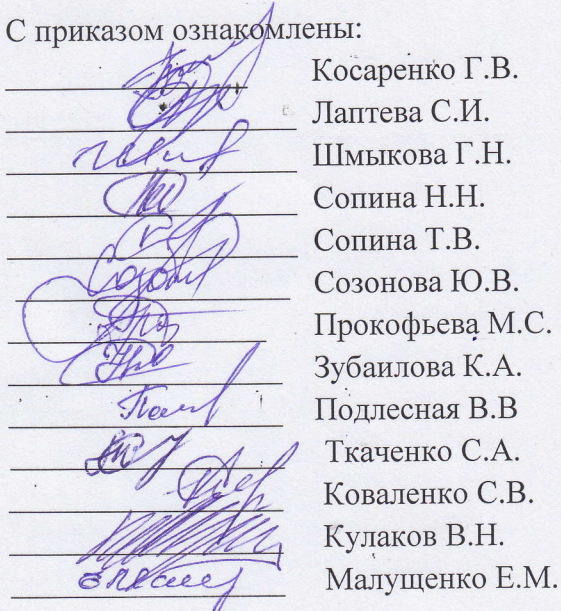 С приказом ознакомлены:
Косаренко Г.В.
Лаптева С.И.
Шмыкова Г.Н.
Сопина Н.Н.
Сопина Т.В.
Созонова Ю.В.
Прокофьева М.С.
Зубаилова К.А.
Подлесная В.В
Ткаченко С.А.
Коваленко С.В.
Кулаков В.Н.
Малущенко Е.М.